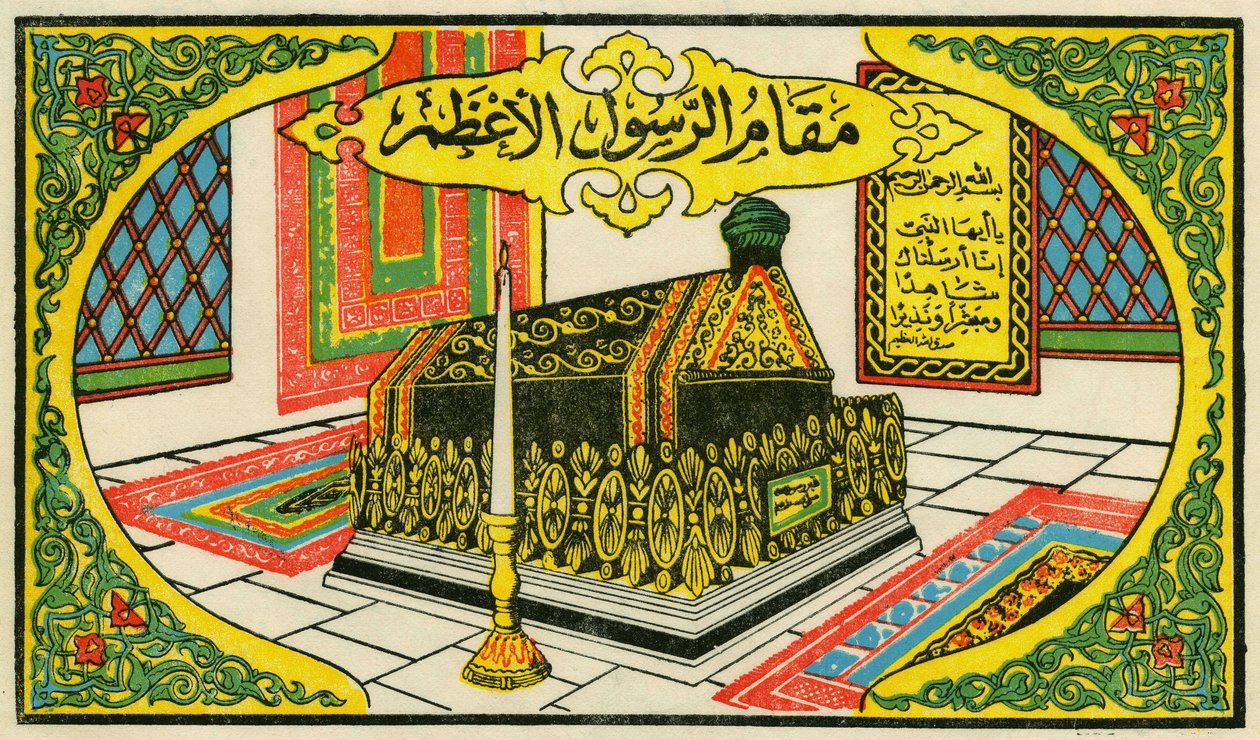 مَقَامُ الرَّسُول الأَعْظَم
بسم الله الرحمن الرحيم
يا أيها النبيّ
إنّا أرسلناك
شاهدًا
ومبشرًا ونذيرًا
صدق الله العظيم